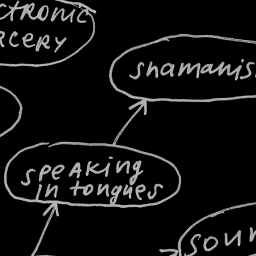 CTRONIC
RCERY
shamanis
SPEAKING
in tongues
sour